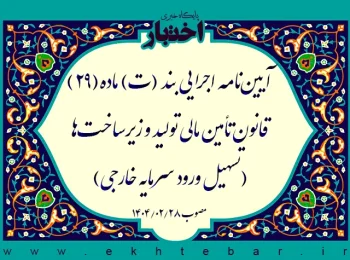 پایگاه خبری
اختبار
آیین‌نامه اجرایی بند (ت) ماده (۲۹)
قانون تأمین مالی تولید و زیرساخت‌ها
(تسهیل ورود سرمایه خارجی)
مصوب ۱۴۰۴/۰۲/۲۸
www.ekhtebar.ir